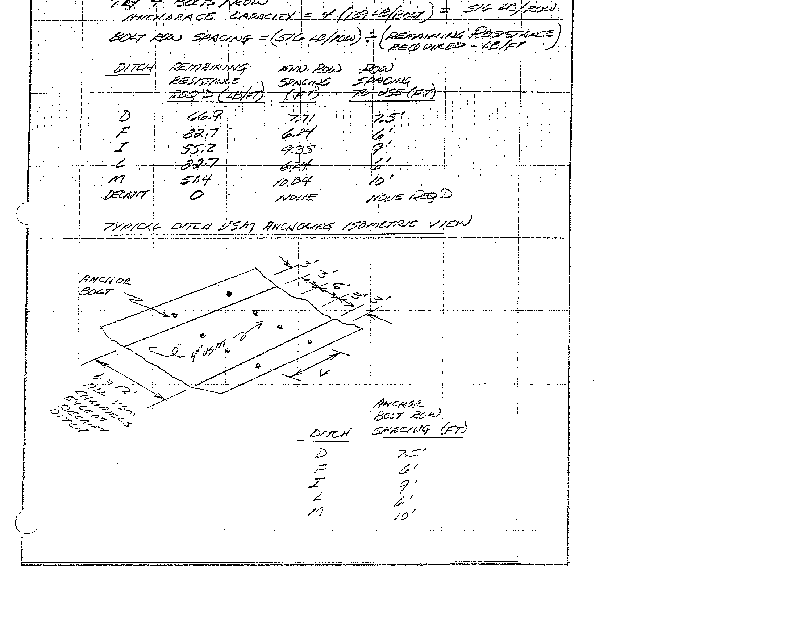 TRY 4 BOLTS / ROW
ANCHORAGE CAPACITY = 4 (129 LB/BOLT) = 516 LB/ROW
BOLT ROW SPACING = (516 LB/ROW) ÷ (REMAINING RESISTANCE REQUIRED - LB/FT)
DITCH REMAINING RESISTANCE REQ'D (LB/FT) MIN. ROW SPACING (FT) ROW SPACING TO USE (FT)
D 66.9 7.71 7.5'
F 82.7 6.24 6'
I 55.2 9.35 9'
L 82.7 6.24 6'
M 51.4 10.04 10'
DECANT 0 NONE NONE REQ'D
TYPICAL DITCH ANCHORING ISOMETRIC VIEW
ANCHOR
BOLT
3'
3'
6'
3'
3'
DITCH
ANCHOR
BOLT ROW
SPACING (FT)
D 7.5'
F 6'
I 9'
L 6'
M 10'